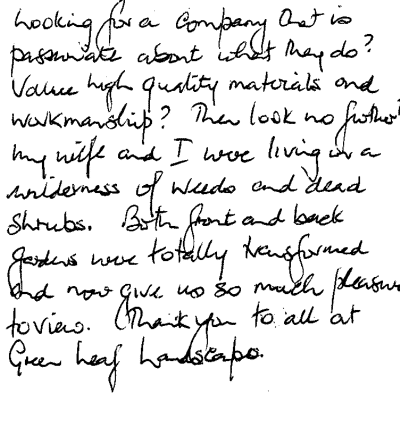 Looking for a company that is
passionate about what they do?
Value high quality materials and
workmanship? Then look no further!
My wife and I were living in a
wilderness of weeds and dead
shrubs. Both front and back
gardens were totally transformed
and now give us so much pleasure
to view. Thank you to all at
Green Leaf Landscapes.